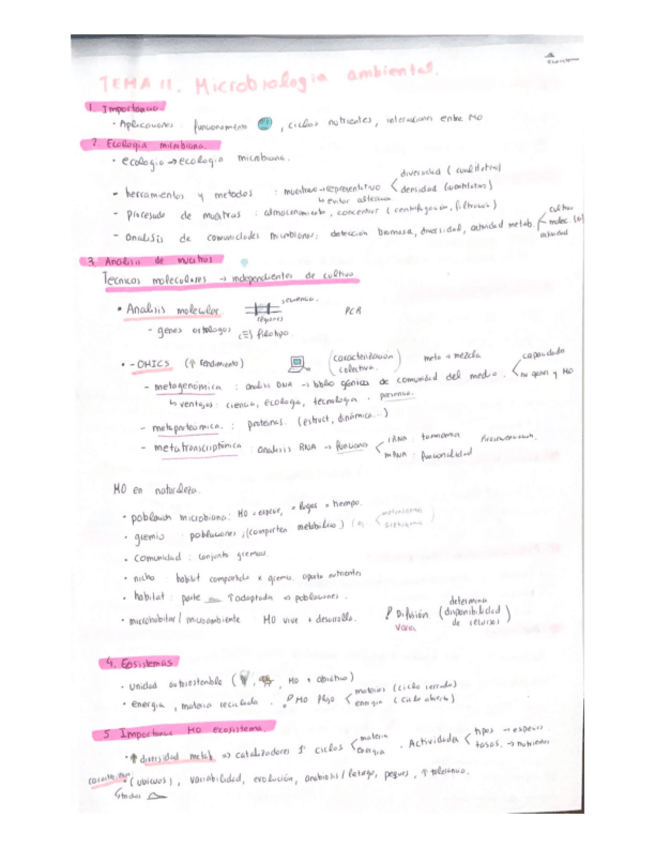 TEMA 11. Microbiologia ambiental.
1. Importancia
- Aplicaciones: funcionamiento , ciclos nutrientes, interacciones entre MO
2. Ecologia microbiana.
• ecologia → ecologia microbiana.
diversidad (cualitativo)
- herramientas y metodos : muestreo → representativo < densidad (cuantitativo)
- procesado de muestras : almacenamiento, concentrar (centrifugación, filtración)
cultivo
- analisis de comunidades microbianas: detección biomasa, diversidad, actividad metab. < molec
actividad
3. Analisis de muestras
Tecnicas moleculares → independientes de cultivo
• Analisis molecular secuencia. PCR
regiones
- genes ortologos filotipo.
• -OMICS (↑ rendimiento) (caracterización colectiva.) meta → mezcla
- metagenomica : analisis DNA → biblio génicas de comunidad del medio. < no genes y MO
↳ ventajas: ciencia, ecologia, tecnologia.
- metaproteomica. : proteinas. (estruct, dinámica...)
- metatranscriptómica : analisis RNA → funciones < rRNA : taxonomia
mRNA : funcionalidad
MO en naturaleza.
• población microbiana: MO = especie, = lugar = tiempo.
• gremio : poblaciones, (comparten metabolismo)
• comunidad : conjunto gremios.
• nicho : habitat compartido x gremio. aporta nutrientes
• habitat : parte ↑ adaptada → poblaciones.
• microhabitat / microambiente : MO vive + desarrolla. Difusión (determina disponibilidad de recursos)
Varia
4. Ecosistemas
• unidad autosostenible ( , , MO + abiotico)
• energia, materia reciclada. MO flujo < materia (ciclo cerrado)
energia (ciclo abierto)
5 Importancia MO ecosistema.
• ↑ diversidad metab. ⇒ catalizadores 1º ciclos < materia
energia . Actividades < tipos → especies.
tasas. → nutrientes
• (ubicuos), variabilidad, evolución, anabiosis / letargo, peques, ↑ tolerancia.
↳ todos